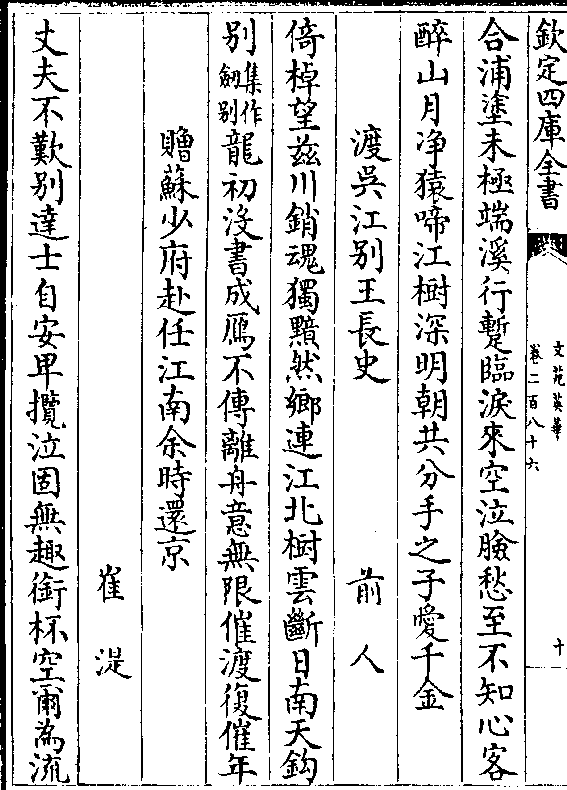 欽定四庫全書
文苑英華
卷二百八十六
十
合浦塗未極端溪行蹔臨淚來空泣臉愁至不知心客
醉山月净猿啼江樹深明朝共分手之子愛千金
渡吳江别王長史 前人
倚棹望兹川銷魂獨黯然鄉連江北樹雲斷日南天鈎
别集作劔别龍初没書成鴈不傳離舟意無限催渡復催年
贈蘇少府赴任江南余時還京
崔湜
丈夫不歎别達士自安卑攬泣固無趣銜杯空爾為流